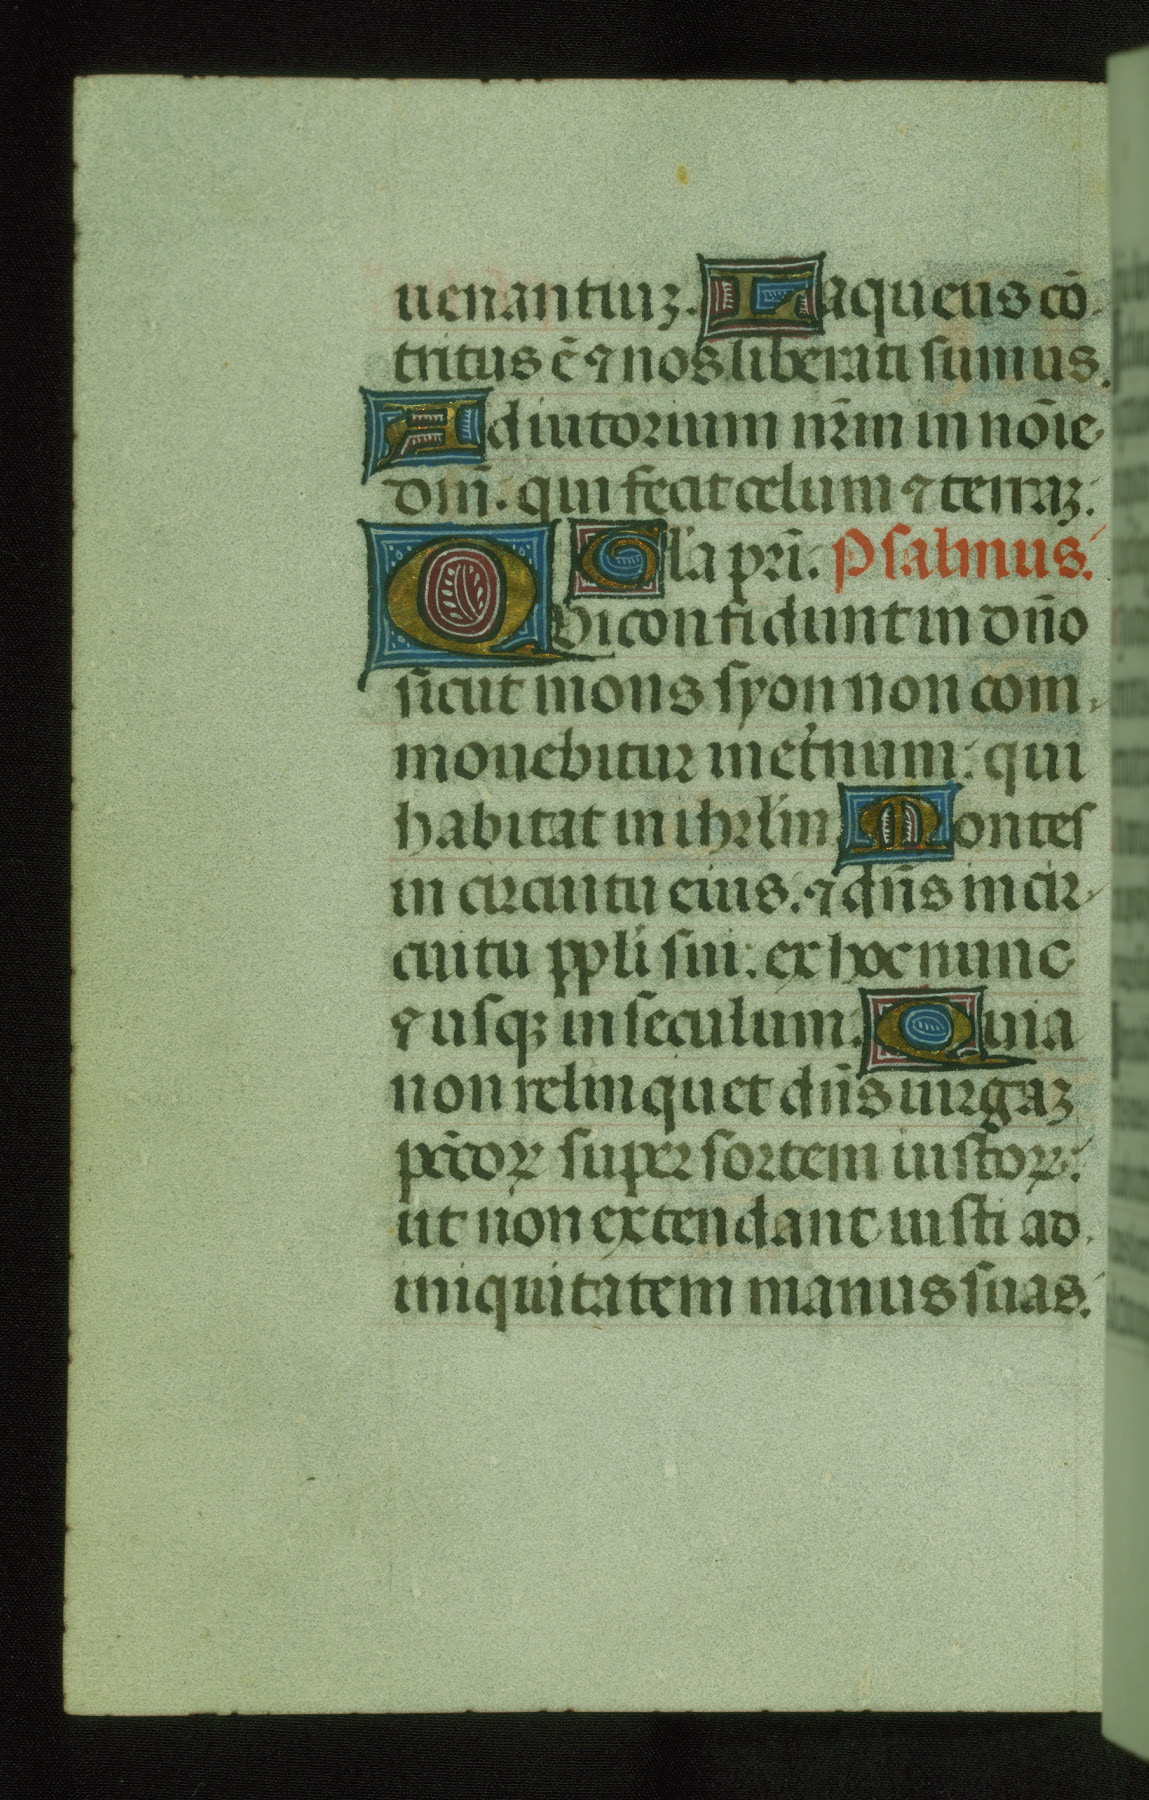 uenantiuȝ. Laqueus cō
tritus ē ⁊ nos liberati sumus.
Adiutorium nr̄m in noīe
dnī. qui fecit celum ⁊ terraȝ.
Gl'a prī. Psalmus.
QVi confidunt in dn̄o
sicut mons syon non com
mouebitur inet'num: qui
habitat in ihrl̄m Montes
in circuitu eius. ⁊ dn̄s in cir
cuitu ppl̄i sui: ex hoc nunc
⁊ usqȝ in seculum. Quia
non relinquet dn̄s uirgaȝ
pc̄coꝝ super sortem iustoꝝ:
ut non extendant iusti ad
iniquitatem manus suas.